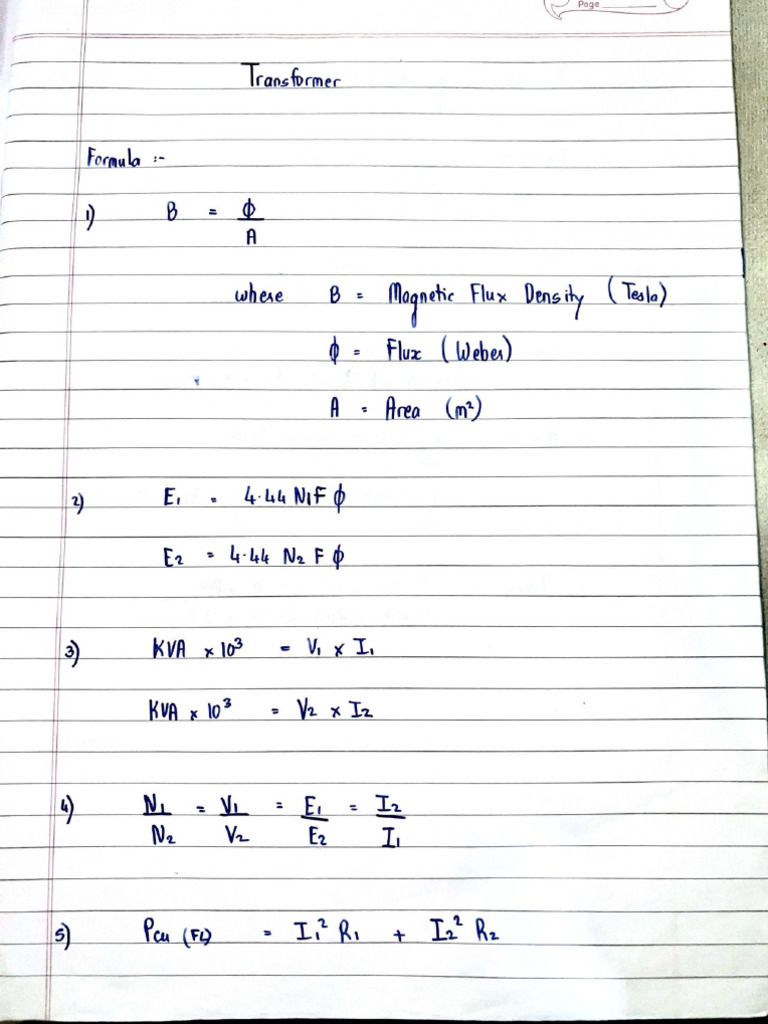 Page
Transformer
Formula :-
1) B = ϕ/A
where B = Magnetic Flux Density (Tesla)
ϕ = Flux (Weber)
A = Area (m²)
2) E₁ = 4.44 N₁F ϕ
E₂ = 4.44 N₂ F ϕ
3) KVA × 10³ = V₁ × I₁
KVA × 10³ = V₂ × I₂
4) N₁/N₂ = V₁/V₂ = E₁/E₂ = I₂/I₁
5) Pcu (FL) = I₁² R₁ + I₂² R₂